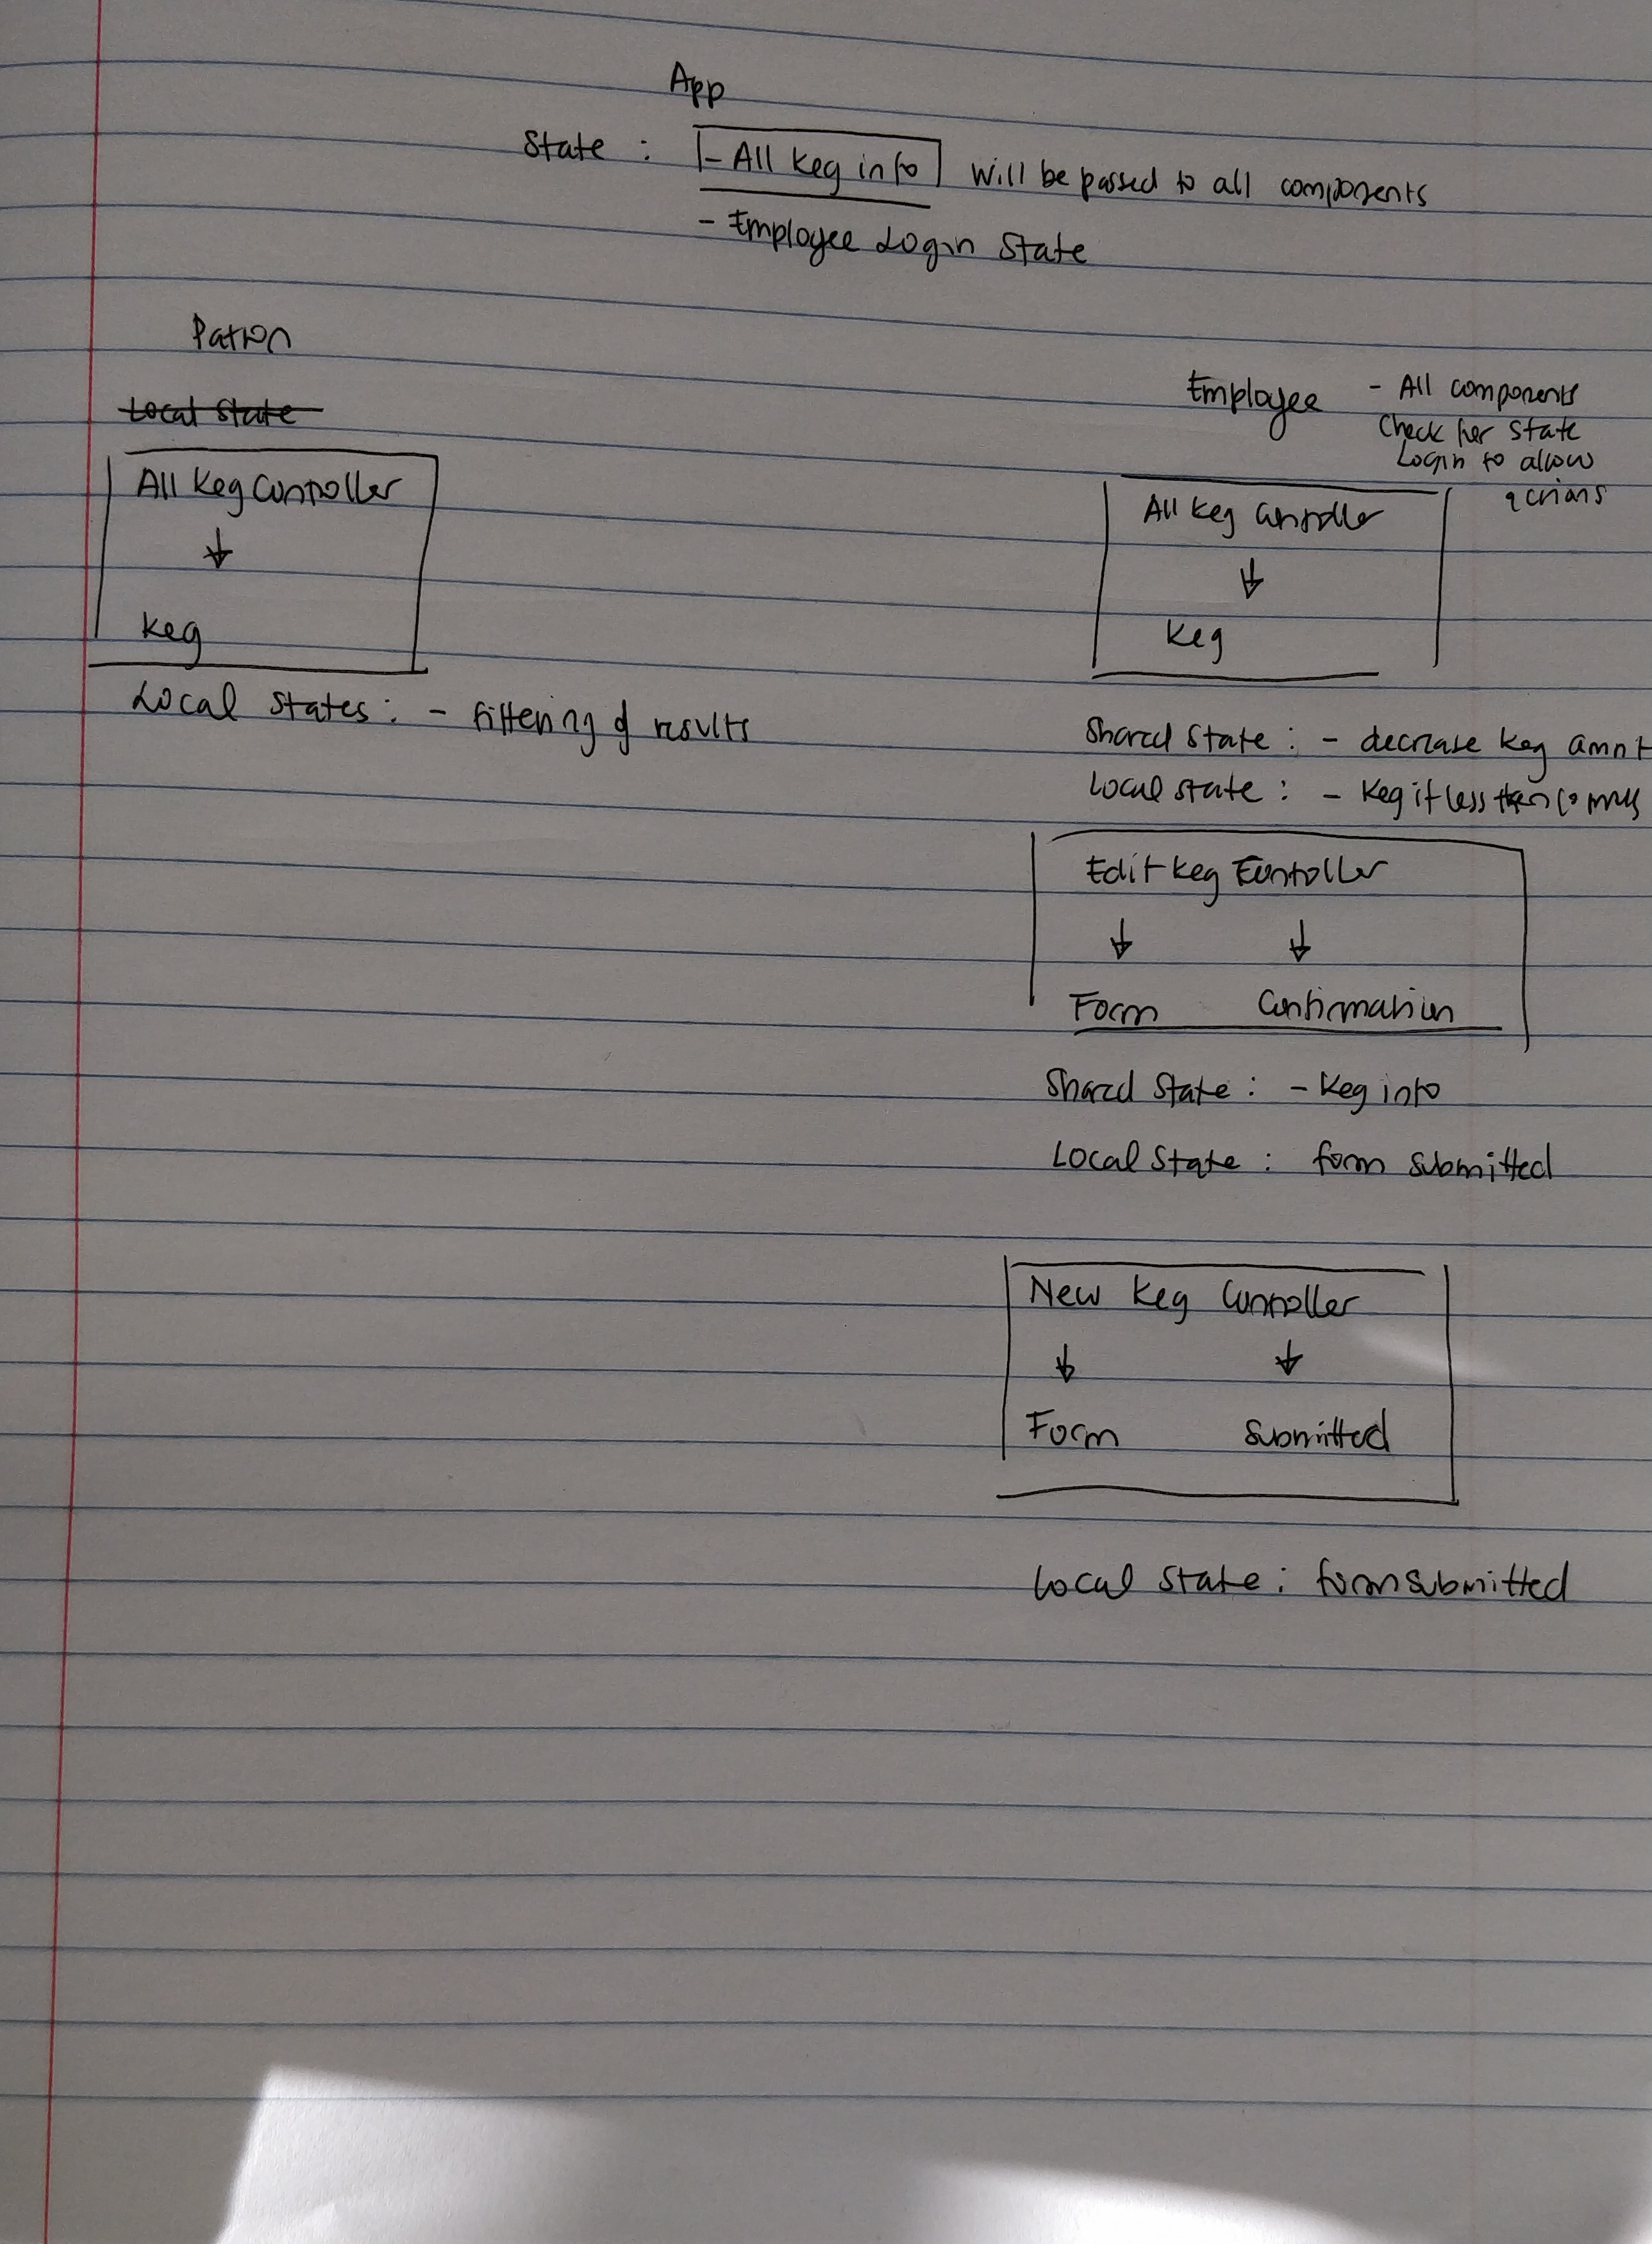 App
State : - All Keg info will be passed to all components
- Employee Login State
Patron
Local State
All Keg Controller
↓
Keg
Local States: - filtering of results
Employee - All components
Check for state
Login to allow
actions
All Keg Controller
↓
Keg
Shared State : - decrease keg amnt
Local state : - Keg if less than
Edit Keg Controller
↓ ↓
Form Confirmation
Shared State : - Keg info
Local State : form submitted
New Keg Controller
↓ ↓
Form Submitted
Local State : form submitted